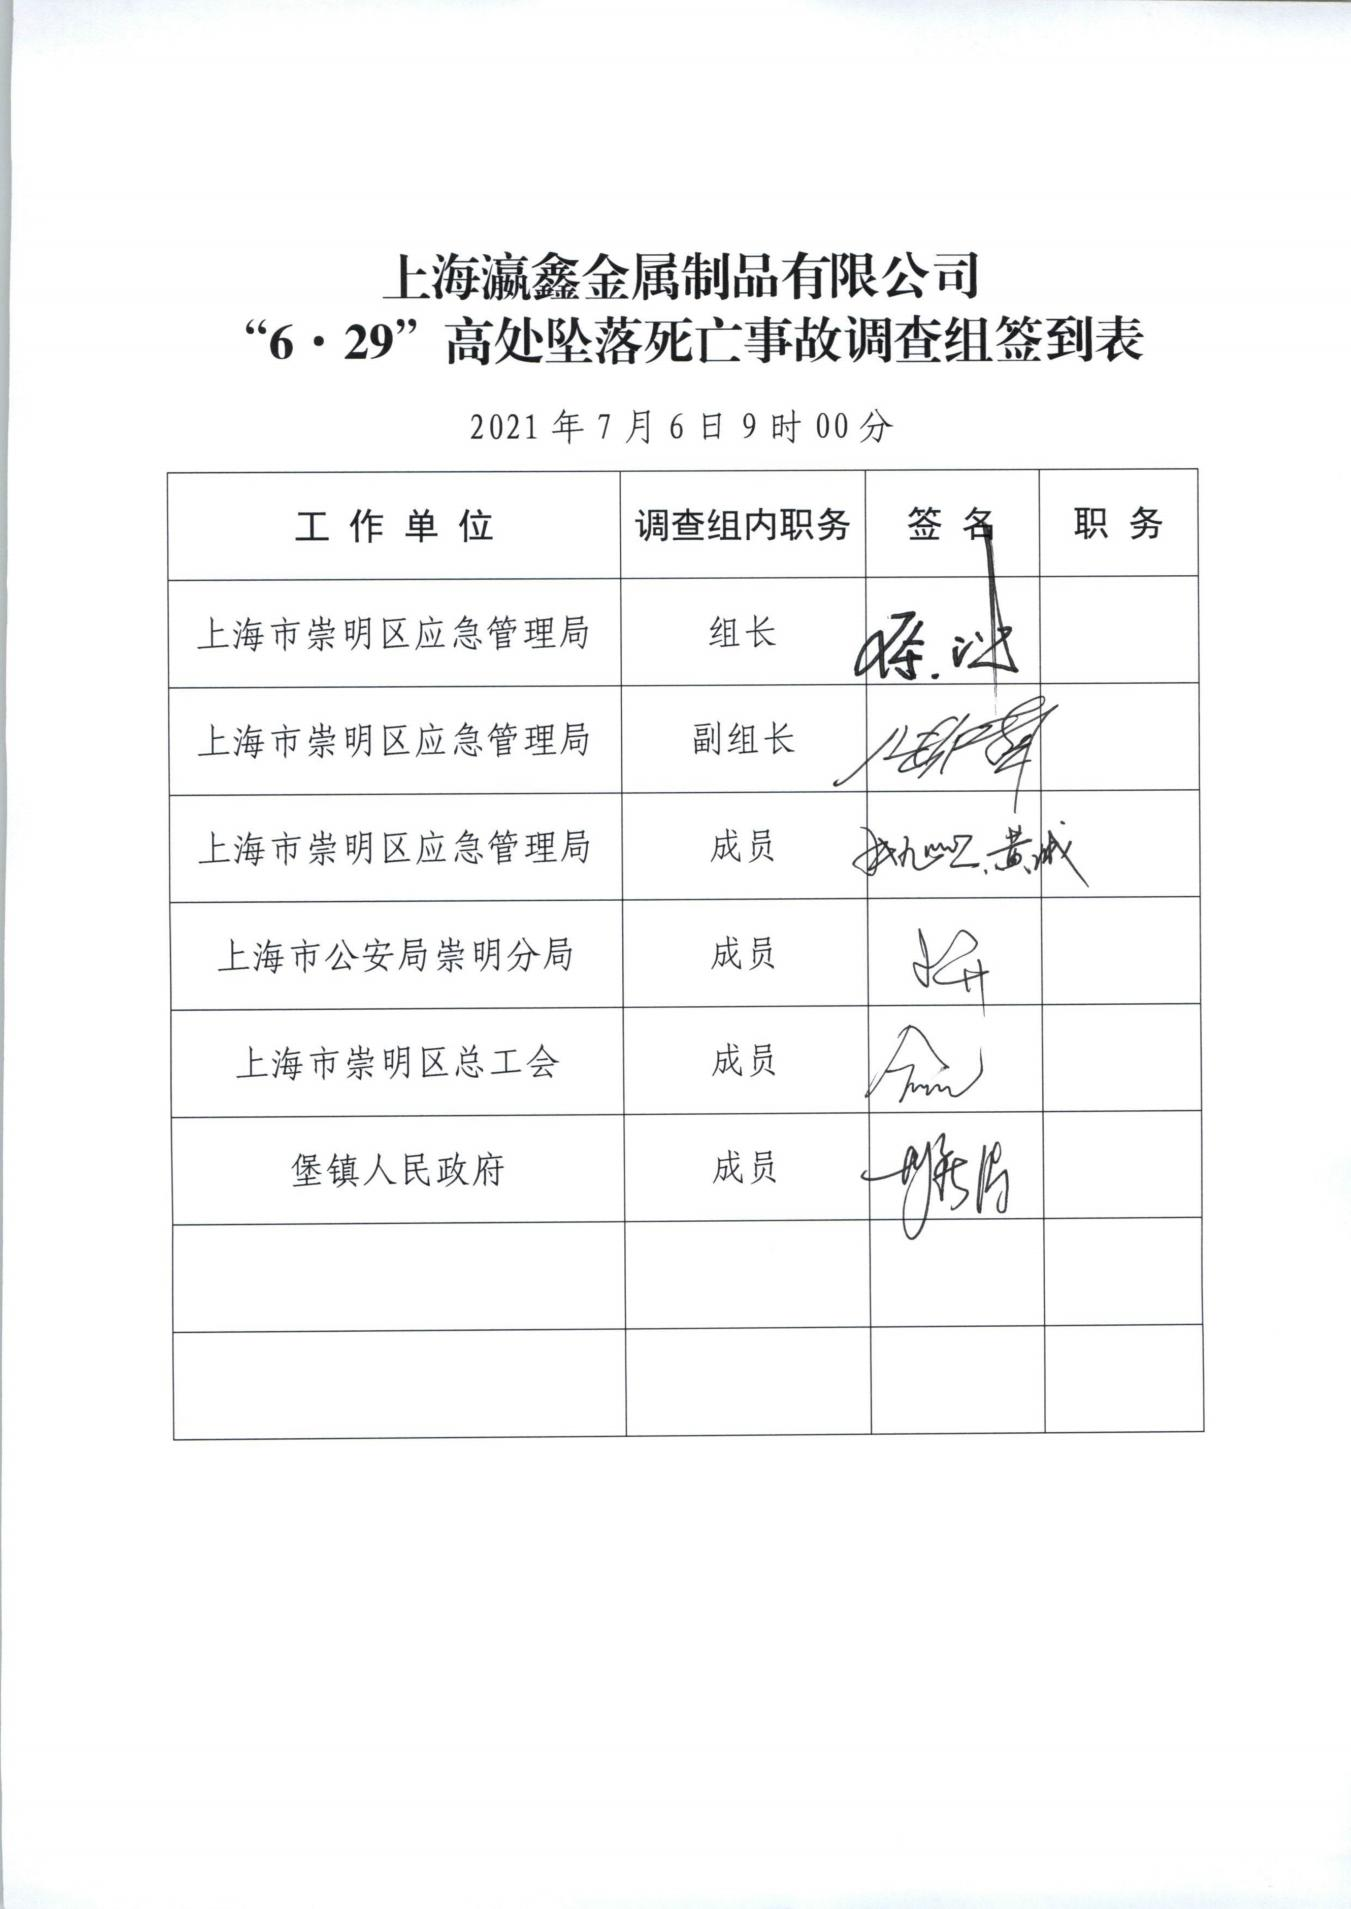 上海瀛鑫金属制品有限公司
“6·29”高处坠落死亡事故调查组签到表
2021年7月6日9时00分
工作单位 调查组内职务 签名 职务
上海市崇明区应急管理局 组长
上海市崇明区应急管理局 副组长
上海市崇明区应急管理局 成员 黄成
上海市公安局崇明分局 成员
上海市崇明区总工会 成员
堡镇人民政府 成员